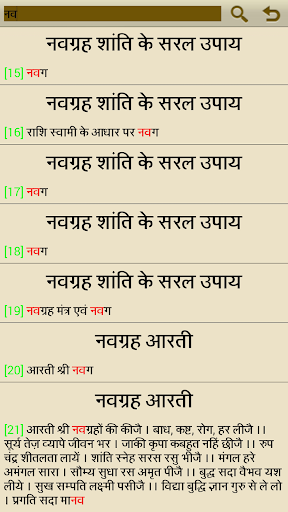 नव
नवग्रह शांति के सरल उपाय
[15] नवग
नवग्रह शांति के सरल उपाय
[16] राशि स्वामी के आधार पर नवग
नवग्रह शांति के सरल उपाय
[17] नवग
नवग्रह शांति के सरल उपाय
[18] नवग
नवग्रह शांति के सरल उपाय
[19] नवग्रह मंत्र एवं नवग
नवग्रह आरती
[20] आरती श्री नवग
नवग्रह आरती
[21] आरती श्री नवग्रहों की कीजै । बाध, कष्ट, रोग, हर लीजै ।।
सूर्य तेज़ व्यापे जीवन भर । जाकी कृपा कबहुत नहिं छीजै ।। रुप
चंद्र शीतलता लायें । शांति स्नेह सरस रसु भीजै ।। मंगल हरे
अमंगल सारा । सौम्य सुधा रस अमृत पीजै ।। बुद्ध सदा वैभव यश
लीये । सुख सम्पति लक्ष्मी पसीजै ।। विद्या बुद्धि ज्ञान गुरु से ले लो
। प्रगति सदा मानव